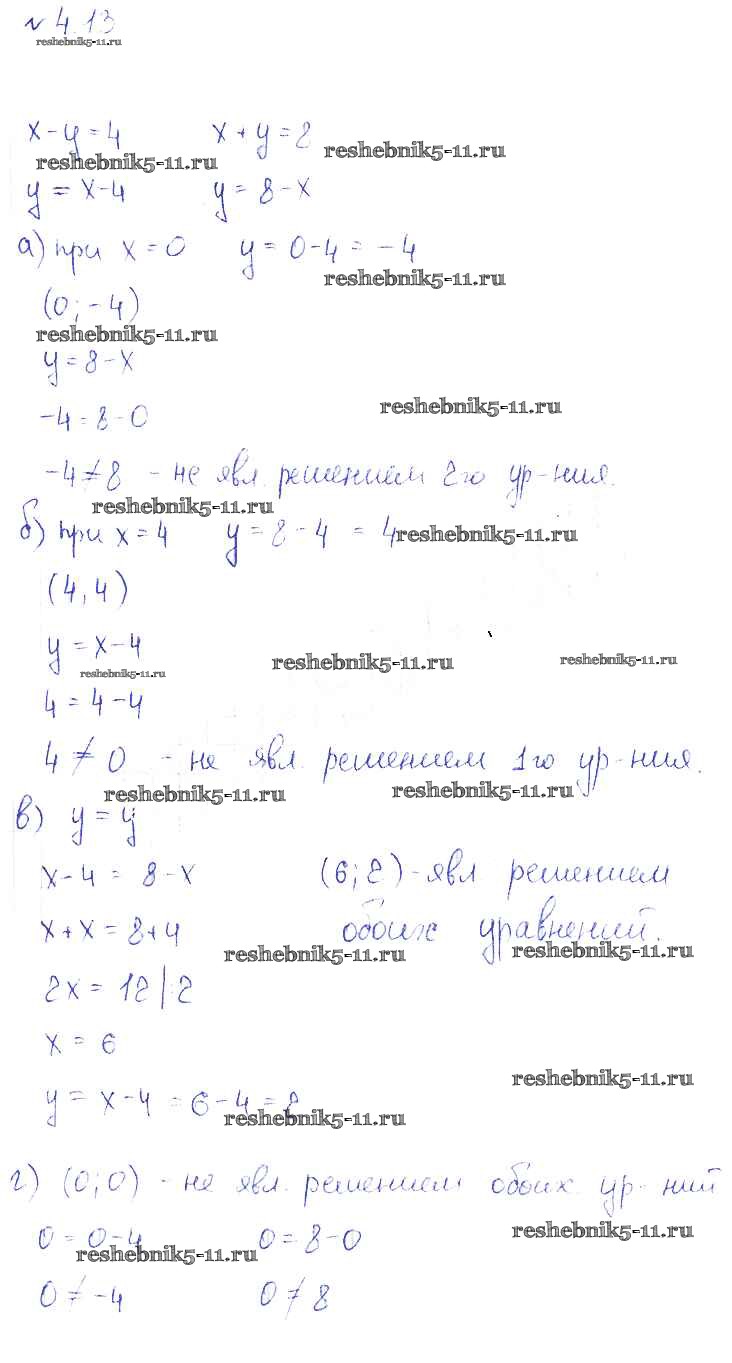 № 4.13
reshebnik5-11.ru
x-y=4 x+y=8
reshebnik5-11.ru reshebnik5-11.ru
y = x-4 y= 8-x
а) при x=0 y= 0-4= -4
reshebnik5-11.ru
(0;-4)
reshebnik5-11.ru
y=8-x
-4=8-0
reshebnik5-11.ru
-4≠8 - не явл. решением 2го ур-ния.
reshebnik5-11.ru
б) при x=4 y=8-4 = 4
reshebnik5-11.ru
(4,4)
y=x-4
reshebnik5-11.ru reshebnik5-11.ru reshebnik5-11.ru
4=4-4
4≠0 - не явл. решением 1го ур-ния.
reshebnik5-11.ru reshebnik5-11.ru
в) y=y
x-4= 8-x (6;2)-явл решением
x+x=8+4 обоих уравнений.
reshebnik5-11.ru reshebnik5-11.ru
2x=12|:2
x=6
reshebnik5-11.ru
y= x-4=6-4=2
reshebnik5-11.ru
г) (0;0) - не явл. решением обоих ур-ний
0= 0-4 0=8-0
reshebnik5-11.ru reshebnik5-11.ru
0≠-4 0≠8